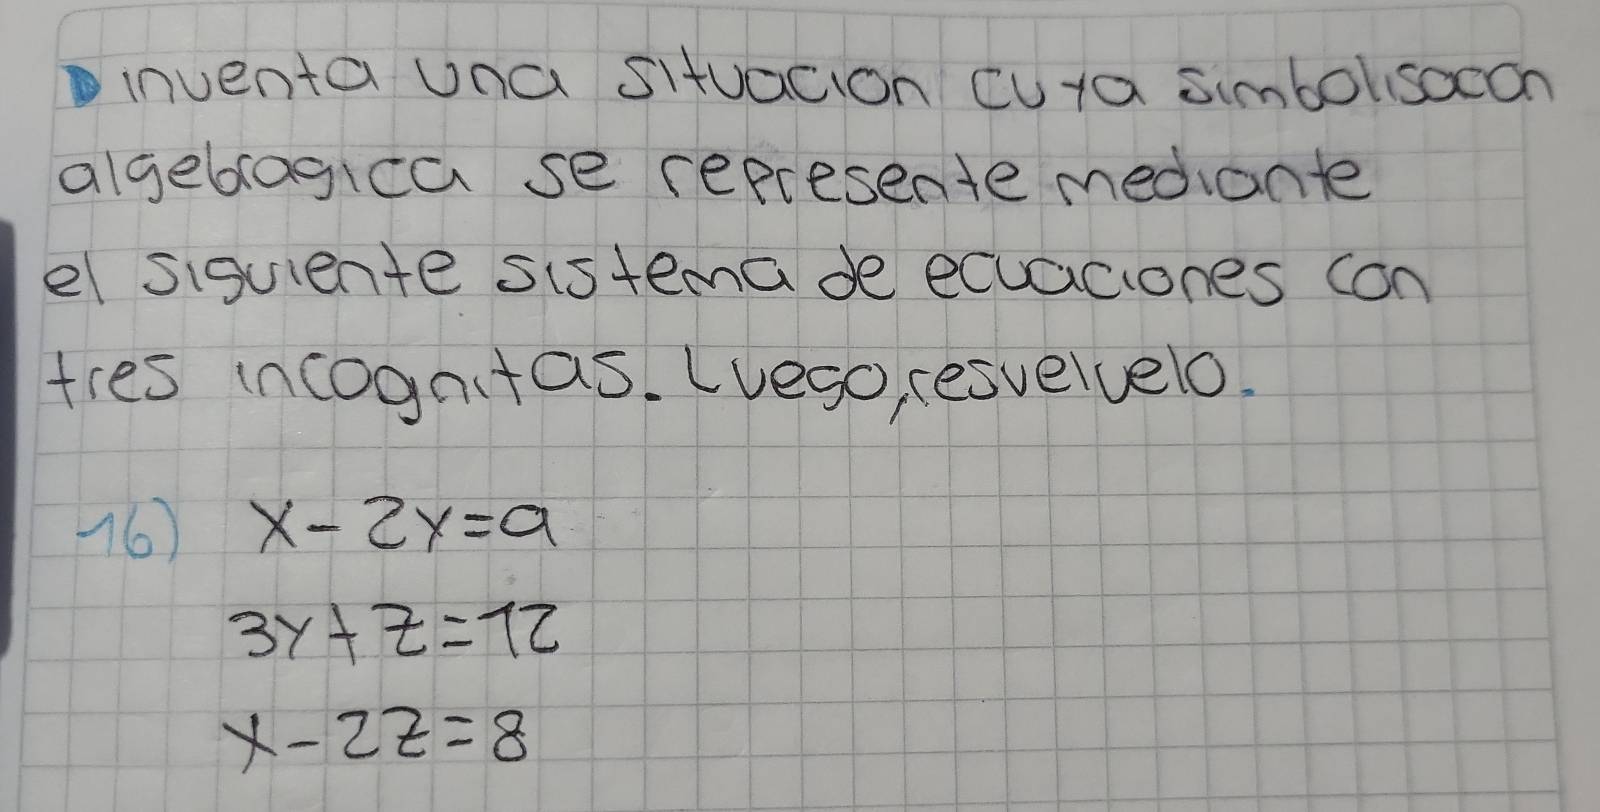 inventa una situacion cuya simbolisacon
algebragica se represente mediante
el siguiente sistema de ecuaciones con
tres incognitas. Luego, resvelvelo.
16) x - 2y = a
3y + z = 12
x - 2z = 8